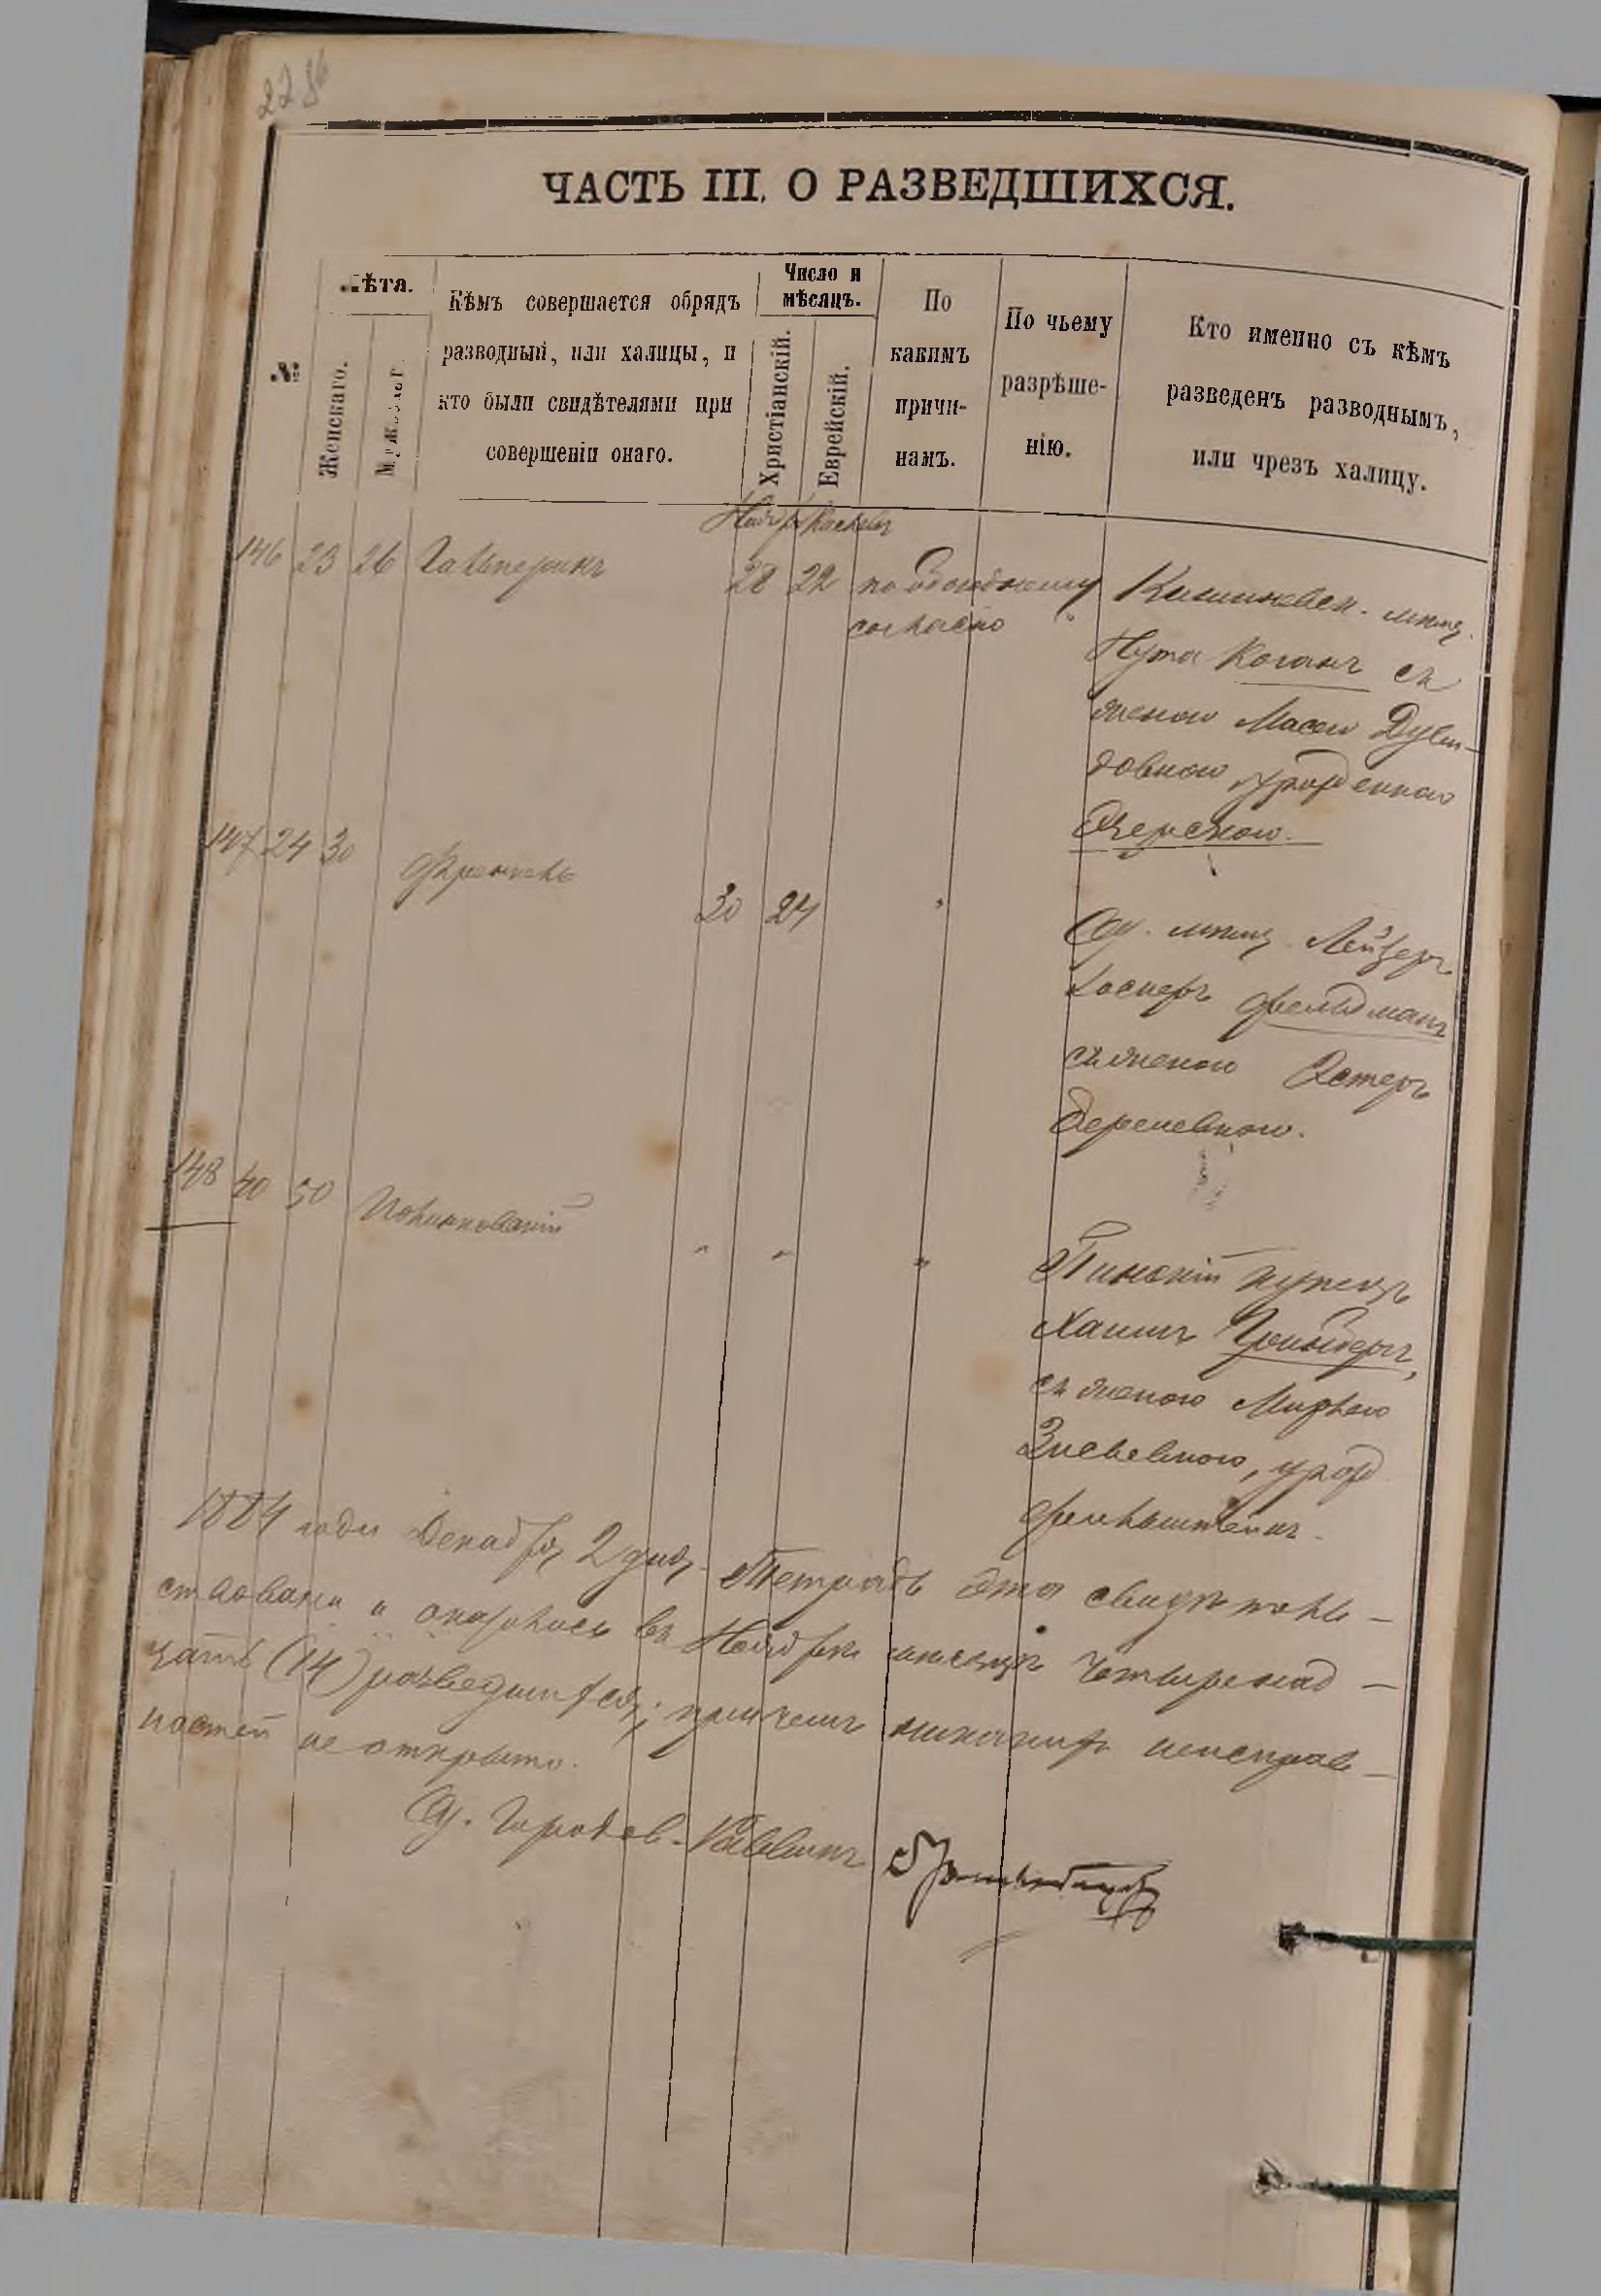 ЧАСТЬ III. О РАЗВЕДШИХСЯ.
№
Лѣта.
Женскаго.
Мужескаго.
Кѣмъ совершается обрядъ
разводный, или халицы, и
кто были свидѣтелями при
совершеніи онаго.
Число и
мѣсяцъ.
Христіанскій.
Еврейскій.
По
какимъ
причи-
намъ.
По чьему
разрѣше-
нію.
Кто именно съ кѣмъ
разведенъ разводнымъ,
или чрезъ халицу.
Ноябрь Кислевъ
146 23 26 Гальперинъ 28 22 по обоюдному
согласію
Кишиневск. мѣщ.
Нута Коганъ съ
женою Масею Дуви-
довною, урожденною
Озерскою.
147 24 30 Френкель 30 24 "
Од. мѣщ. Лейзеръ
Коснеръ Фельдманъ
съ женою Эстеръ
148 40 50 " " "
Пинскій купецъ
Хаимъ Гринбергъ,
съ женою Мирлею
урожд.
1884 года Декабря 2 дня. Тетрадь эта свидѣтель-
ствована и оказалось въ Ноябрѣ мѣсяцѣ четырнад-
цать (14) разведшихся; причемъ никакихъ неисправ-
ностей не открыто.
Од. Городов. Раввинъ